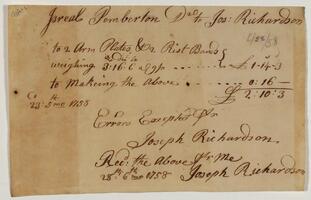 Isreal Pemberton D.r to Jos: Richardson
to 2 Arm Plates & 2 Rist Bands
weighing 3:16:6 £ 1-14-3
to Makeing the Above 0:16
£ 2:10:3
23: 5 mo 1758
Errors Excepted Pr
Joseph Richardson
Recd: the Above Pr Me
28th: 6th mo 1758 Joseph Richardson